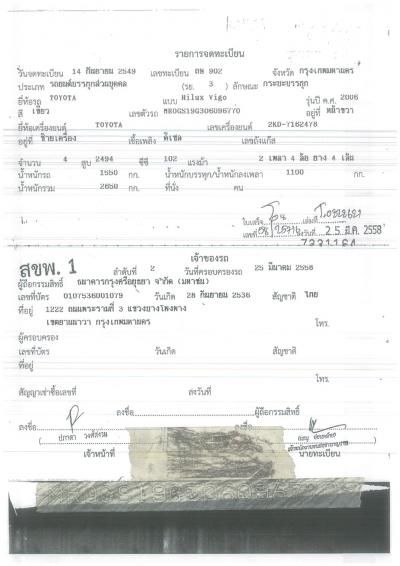 รายการจดทะเบียน
วันจดทะเบียน 14 กันยายน 2549 เลขทะเบียน ถพ 902 จังหวัด กรุงเทพมหานคร
ประเภท รถยนต์บรรทุกส่วนบุคคล (รย. 3 ) ลักษณะ กระบะบรรทุก
ยี่ห้อรถ TOYOTA แบบ Hilux Vigo รุ่นปี ค.ศ. 2006
สี เขียว เลขตัวรถ อยู่ที่ หน้าขวา
ยี่ห้อเครื่องยนต์ TOYOTA เลขเครื่องยนต์ 2KD-7162478
อยู่ที่ ซ้ายเครื่อง เชื้อเพลิง ดีเซล เลขถังแก๊ส
จำนวน 4 สูบ 2494 ซีซี 102 แรงม้า 2 เพลา 4 ล้อ ยาง 4 เส้น
น้ำหนักรถ 1550 กก. น้ำหนักบรรทุก/น้ำหนักลงเพลา 1100 กก.
น้ำหนักรวม 2650 กก. ที่นั่ง คน
ใบเสร็จ เล่มที่
เลขที่ ลงวันที่ 25 มี.ค. 2558
เจ้าของรถ
สขพ. 1
ลำดับที่ 2 วันที่ครอบครองรถ 25 มีนาคม 2558
ผู้ถือกรรมสิทธิ์ ธนาคารกรุงศรีอยุธยา จำกัด (มหาชน)
เลขที่บัตร 0107536001079 วันเกิด 28 กันยายน 2536 สัญชาติ ไทย
ที่อยู่ 1222 ถนนพระรามที่ 3 แขวงบางโพงพาง
เขตยานนาวา กรุงเทพมหานคร โทร.
ผู้ครอบครอง
เลขที่บัตร วันเกิด สัญชาติ
ที่อยู่
โทร.
สัญญาเช่าซื้อเลขที่ ลงวันที่
ลงชื่อ ผู้ถือกรรมสิทธิ์
ลงชื่อ ลงชื่อ
เจ้าหน้าที่ นายทะเบียน